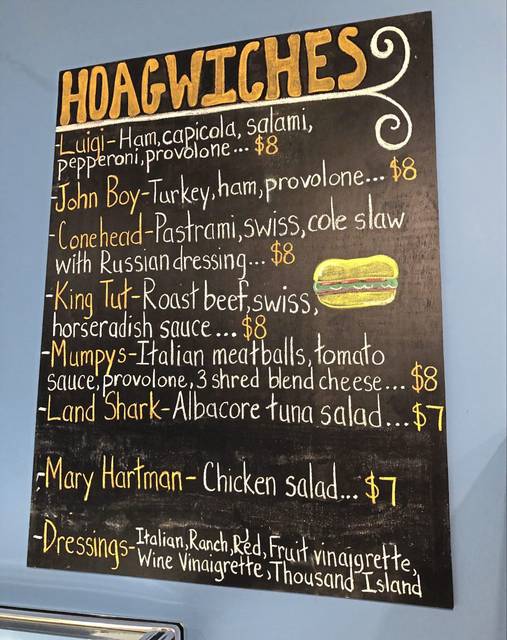 HOAGWICHES
-Luigi-Ham, capicola, salami,
pepperoni, provolone... $8
-John Boy-Turkey, ham, provolone... $8
-Conehead-Pastrami, swiss, cole slaw
with Russian dressing... $8
-King Tut-Roast beef, swiss,
horseradish sauce... $8
-Mumpys-Italian meatballs, tomato
sauce, provolone, 3 shred blend cheese... $8
-Land Shark-Albacore tuna salad...$7
-Mary Hartman-Chicken salad... $7
-Dressings-Italian, Ranch, Red, Fruit vinaigrette,
Wine Vinaigrette, Thousand Island